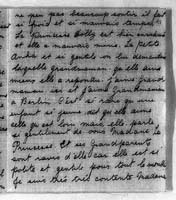 ne peu pas beaucoup sortir il fait
si froid et si mauvais temps.
La Princesse Dolly est bien
et elle a mauvaise mine. La Petite
et si gentille on lui demande
laquelle Grandmaman elle aime
mieux elle a repondu j'aime grand
maman ici et j'aime Grandmaman
a Berlin. C'est si rare qu'une
enfant si jeune dit qu'elle aime
celle qui est loin mais elle parle
si gentiment de vous Madame la
Princesse. Et ses Grandparents
sont ravis d'elle car elle est si
polie et gentille pour tout le monde
Je suis très très contente Madame